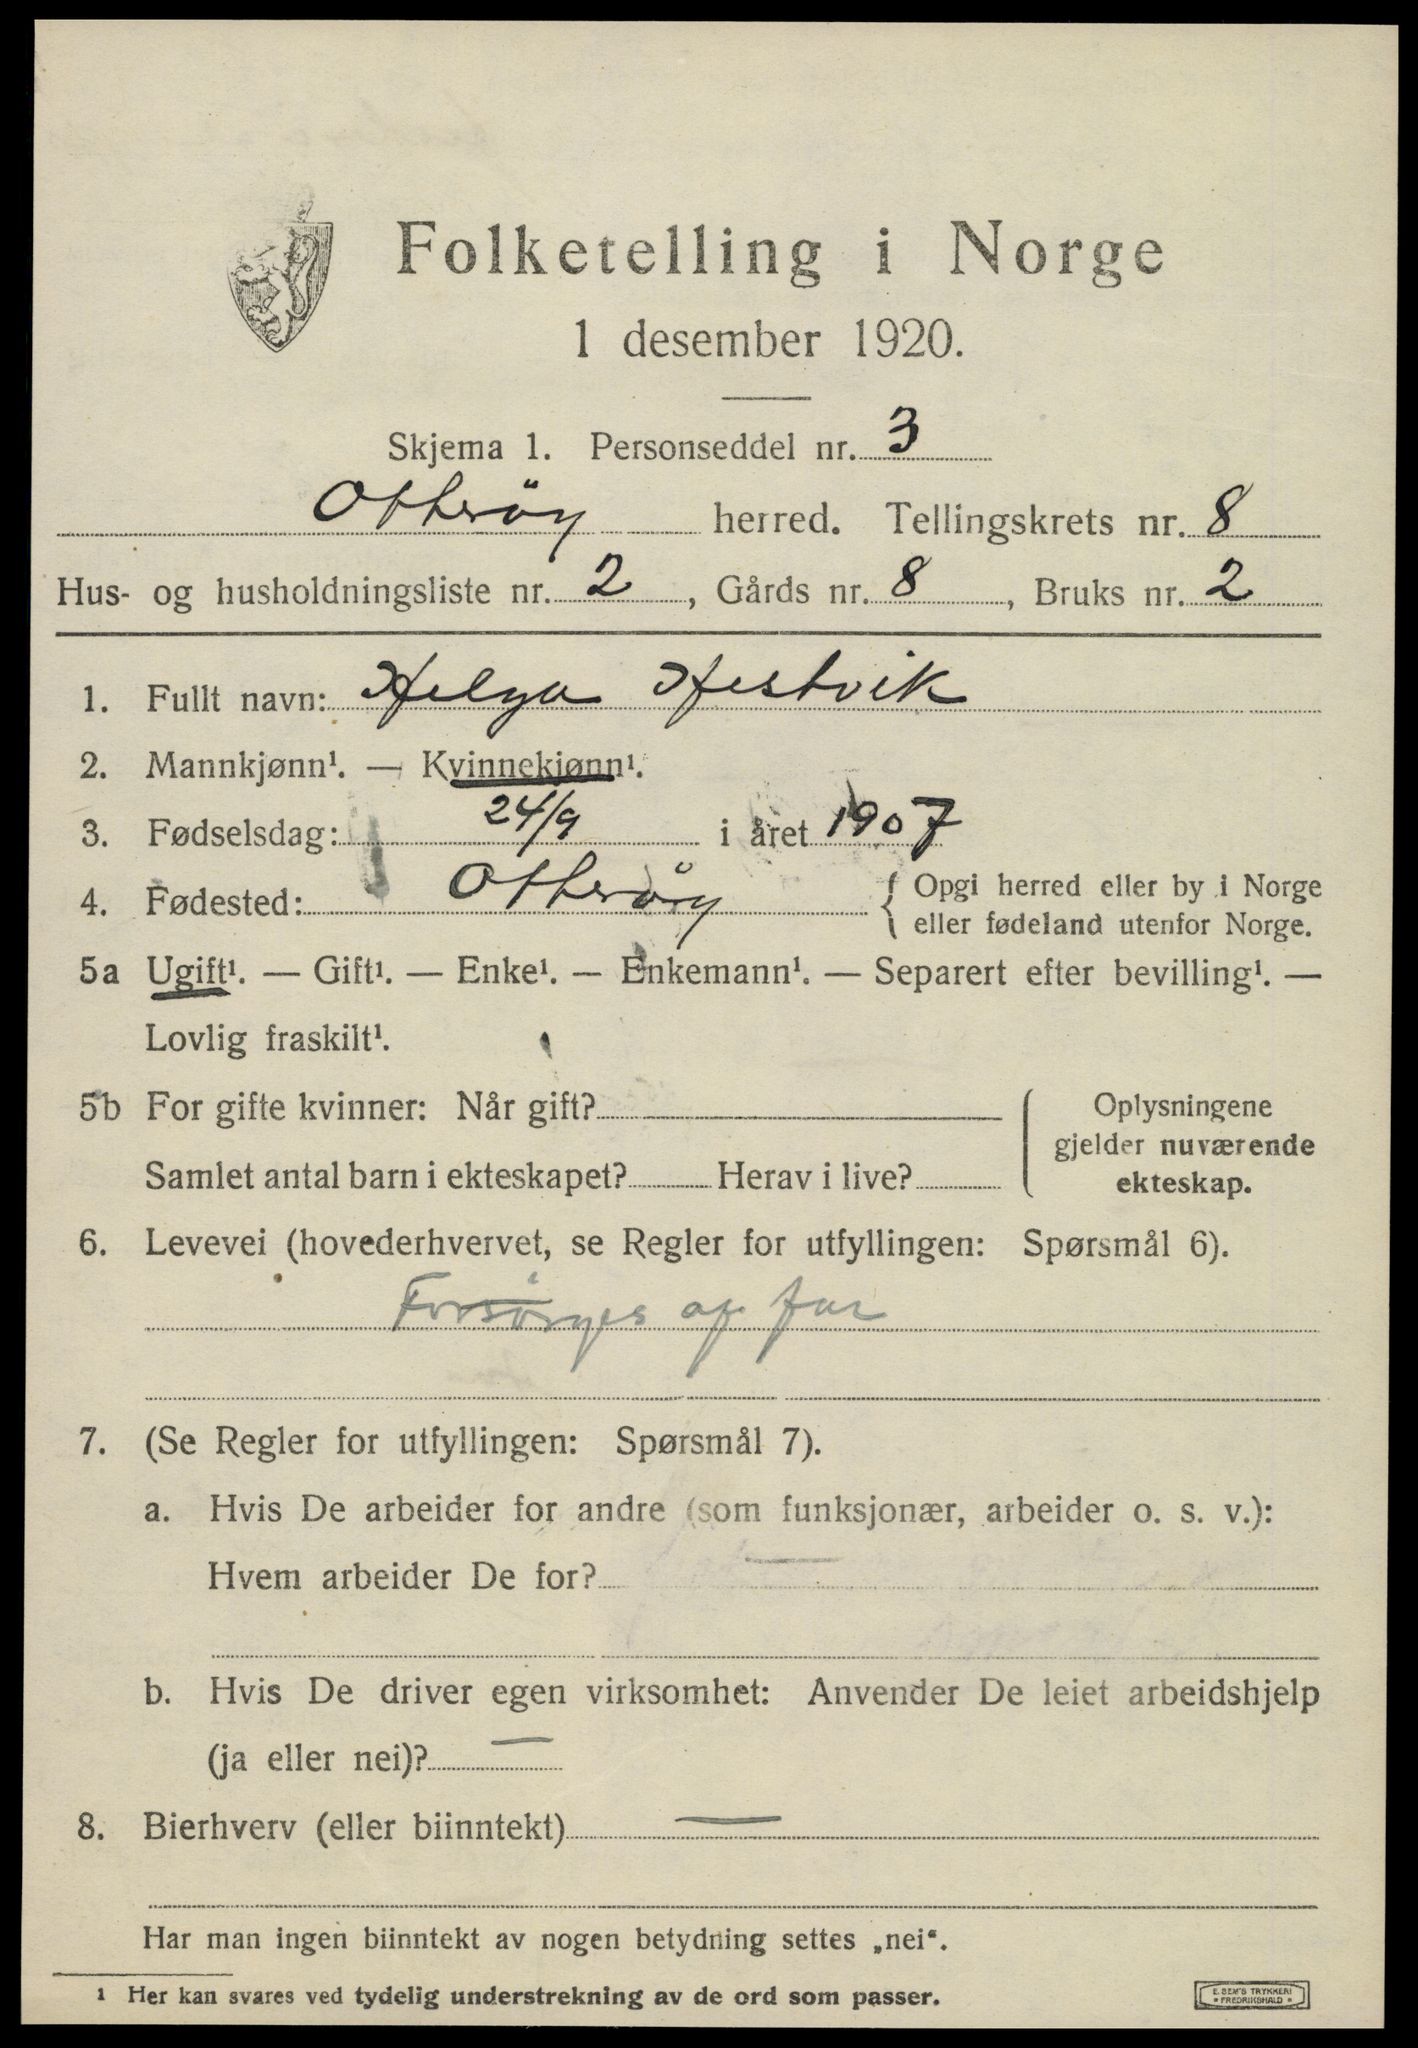 Folketelling i Norge
1 desember 1920.
Skjema 1. Personseddel nr. 3
Otterøy herred. Tellingskrets nr. 8
Hus- og husholdningsliste nr. 2, Gårds nr. 8, Bruks nr. 2
1. Fullt navn: Helga Hestvik
2. Mannkjønn¹. — Kvinnekjønn¹.
3. Fødselsdag: 24/9 i året 1907
4. Fødested: Otterøy { Opgi herred eller by i Norge
eller fødeland utenfor Norge.
5a Ugift¹. — Gift¹. — Enke¹. — Enkemann¹. — Separert efter bevilling¹. —
Lovlig fraskilt¹.
5b For gifte kvinner: Når gift?
Samlet antal barn i ekteskapet? Herav i live?
Oplysningene
gjelder nuværende
ekteskap.
6. Levevei (hovederhvervet, se Regler for utfyllingen: Spørsmål 6).
Forsørges af far
7. (Se Regler for utfyllingen: Spørsmål 7).
a. Hvis De arbeider for andre (som funksjonær, arbeider o. s. v.):
Hvem arbeider De for? —
b. Hvis De driver egen virksomhet: Anvender De leiet arbeidshjelp
(ja eller nei)? —
8. Bierhverv (eller biinntekt) —
Har man ingen biinntekt av nogen betydning settes „nei“.
¹ Her kan svares ved tydelig understrekning av de ord som passer.
E. SEM'S TRYKKERI
* FREDRIKSHALD *